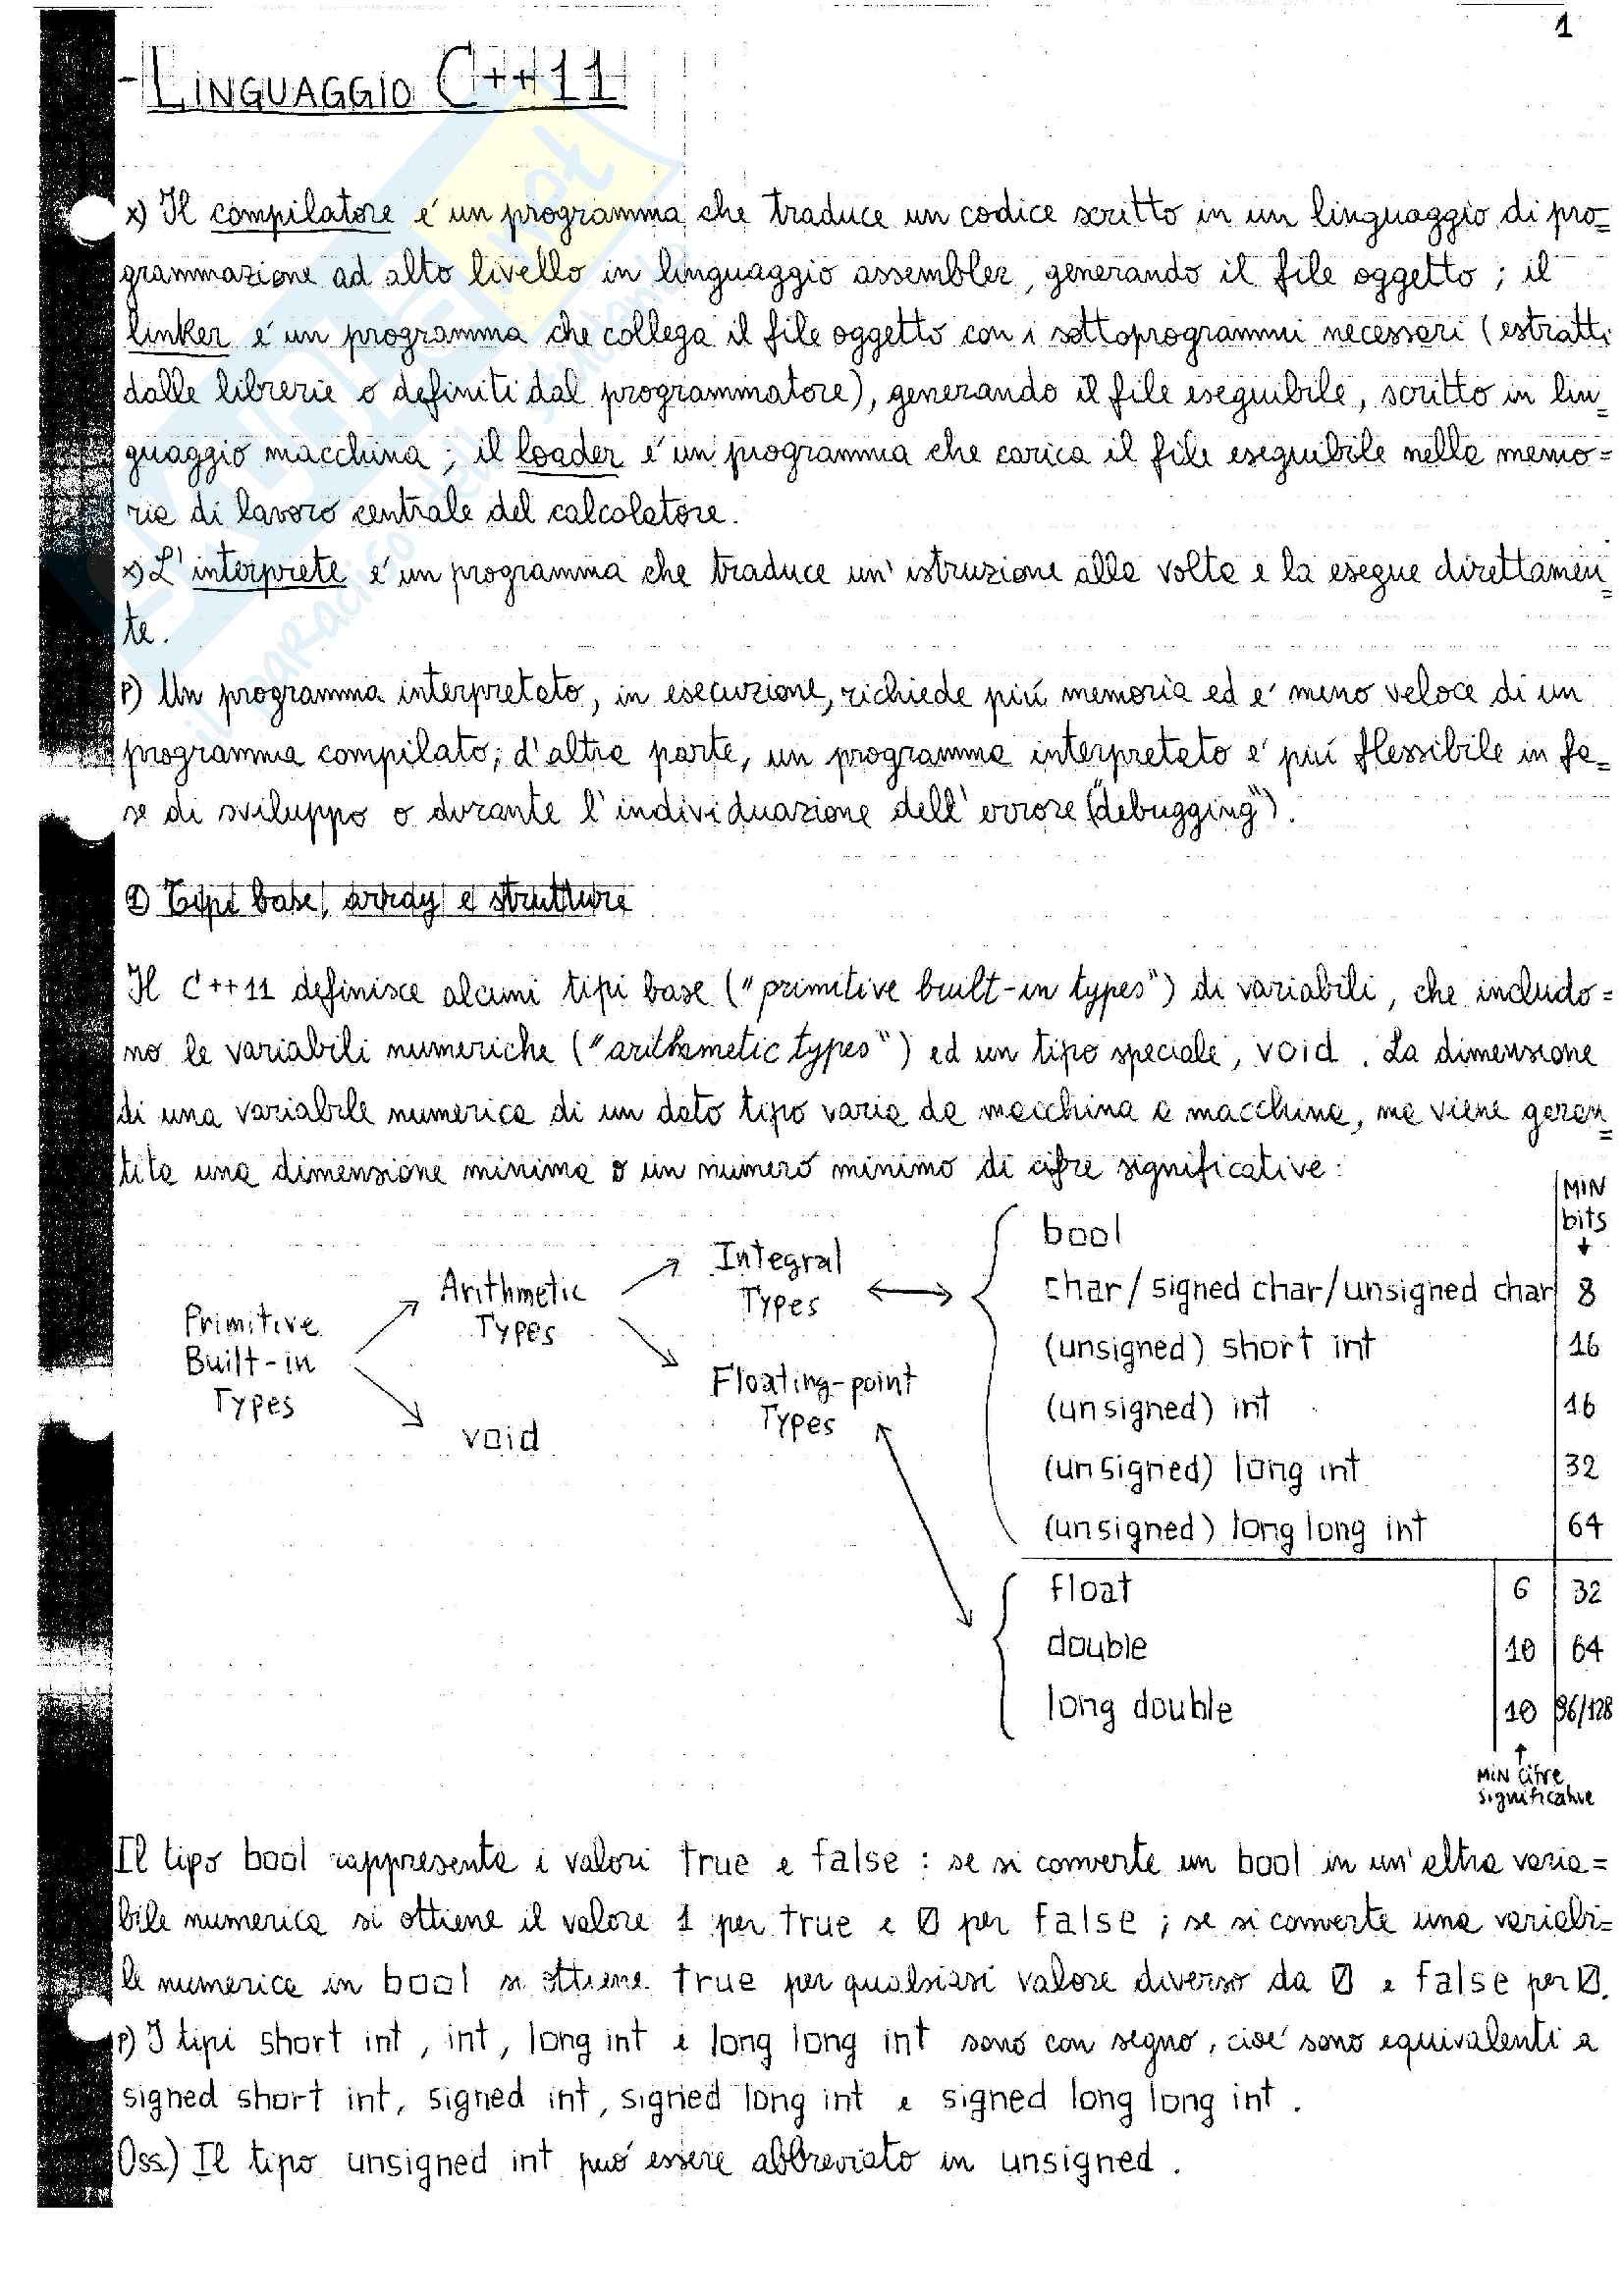 1
- LINGUAGGIO C++11
x) Il compilatore é un programma che traduce un codice scritto in un linguaggio di pro=
grammazione ad alto livello in linguaggio assembler, generando il file oggetto; il
linker é un programma che collega il file oggetto con i sottoprogrammi necessari (estratti
dalle librerie o definiti dal programmatore), generando il file eseguibile, scritto in lin=
guaggio macchina; il loader é un programma che carica il file eseguibile nella memo=
ria di lavoro centrale del calcolatore.
x) L'interprete é un programma che traduce un'istruzione alla volta e la esegue direttamen=
te.
P) Un programma interpretato, in esecuzione, richiede piú memoria ed é meno veloce di un
programma compilato; d'altra parte, un programma interpretato é piú flessibile in fa=
se di sviluppo o durante l'individuazione dell'errore ("debugging").
① Tipi base, array e strutture
Il C++11 definisce alcuni tipi base ("primitive built-in types") di variabili, che includo=
no le variabili numeriche ("arithmetic types") ed un tipo speciale, void. La dimensione
di una variabile numerica di un dato tipo varia da macchina a macchina, ma viene garan=
tita una dimensione minima o un numero minimo di cifre significative:
MIN
bits
↓
Primitive
Built-in
Types
Arithmetic
Types
void
Integral
Types
Floating-point
Types
bool
char/signed char/unsigned char 8
(unsigned) short int 16
(unsigned) int 16
(unsigned) long int 32
(unsigned) long long int 64
float 6 32
double 10 64
long double 10 96/128
↑
MIN cifre
significative
Il tipo bool rappresenta i valori true e false : se si converte un bool in un'altra varia=
bile numerica si ottiene il valore 1 per true e 0 per false ; se si converte una variabi=
le numerica in bool si ottiene true per qualsiasi valore diverso da 0 e false per 0.
P) I tipi short int, int, long int e long long int sono con segno, cioé sono equivalenti a
signed short int, signed int, signed long int e signed long long int.
Oss.) Il tipo unsigned int puó essere abbreviato in unsigned.